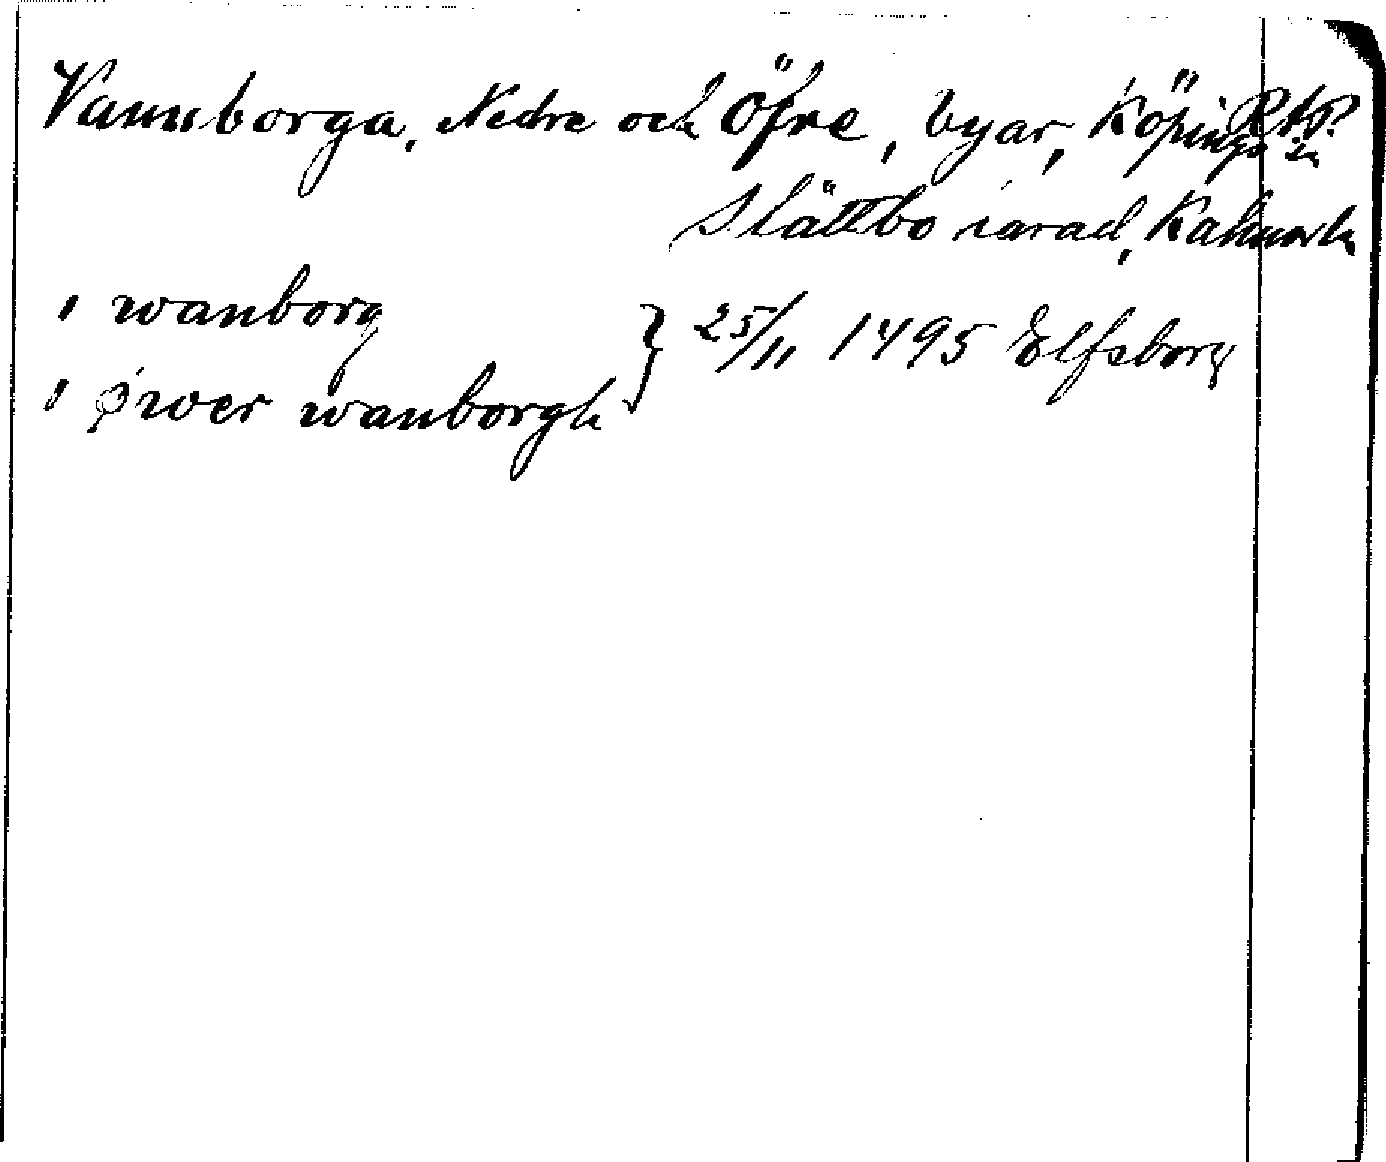 Vannborga, Nedre och Öfre, byar, Köpings sn
RAP?
Slättbo härad, Kalmar l.
i wanborg
i øwer wanborgh } 25/11 1495 Elfsborg